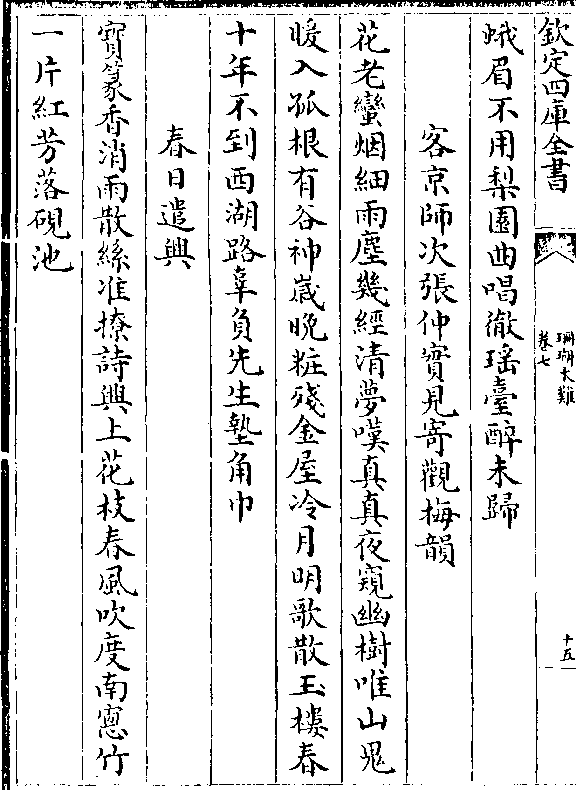 欽定四庫全書
珊瑚木難
卷七
十五
蛾眉不用梨園曲唱徹瑶臺醉未歸
客京師次張仲實見寄觀梅韻
花老蠻烟細雨塵幾經清夢嘆真真夜窺幽樹唯山鬼
暖入孤根有谷神嵗晩粧殘金屋冷月明歌散玉樓春
十年不到西湖路辜負先生墊角巾
春日遣興
寳篆香消雨散絲准撩詩興上花枝春風吹度南窻竹
一片紅芳落硯池